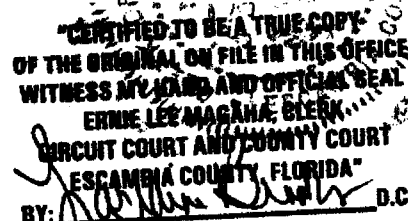 "CERTIFIED TO BE A TRUE COPY
OF THE ORIGINAL ON FILE IN THIS OFFICE
WITNESS MY HAND AND OFFICIAL SEAL
ERNIE LEE MAGAHA, CLERK
CIRCUIT COURT AND COUNTY COURT
ESCAMBIA COUNTY, FLORIDA"
BY: D.C